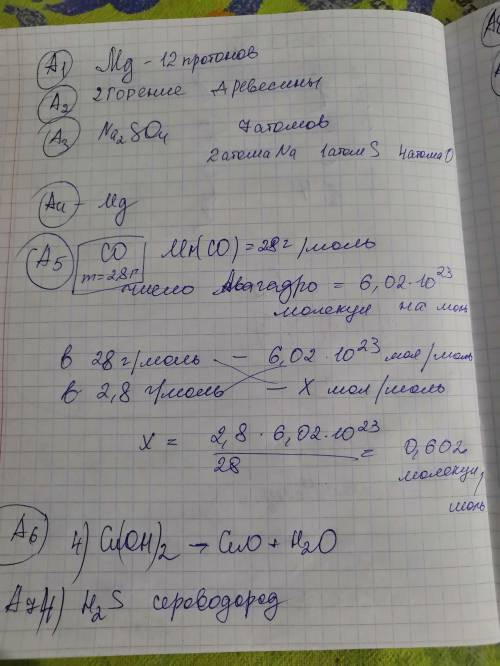 А1 Mg - 12 протонов
А2 2 горение древесины
А3 Na2SO4 7 атомов
2 атома Na 1 атом S 4 атома O
А4 - Mg
А5 CO Mr(CO) = 28 г/моль
m=2,8г
число Авагадро = 6,02·10^23
молекул на моль
в 28 г/моль - 6,02·10^23 мол/моль
в 2,8 г/моль - X мол/моль
X = 2,8 · 6,02·10^23 / 28 = 0,602
молекул/
моль
А6 4) Cu(OH)2 → CuO + H2O
А7 4) H2S сероводород